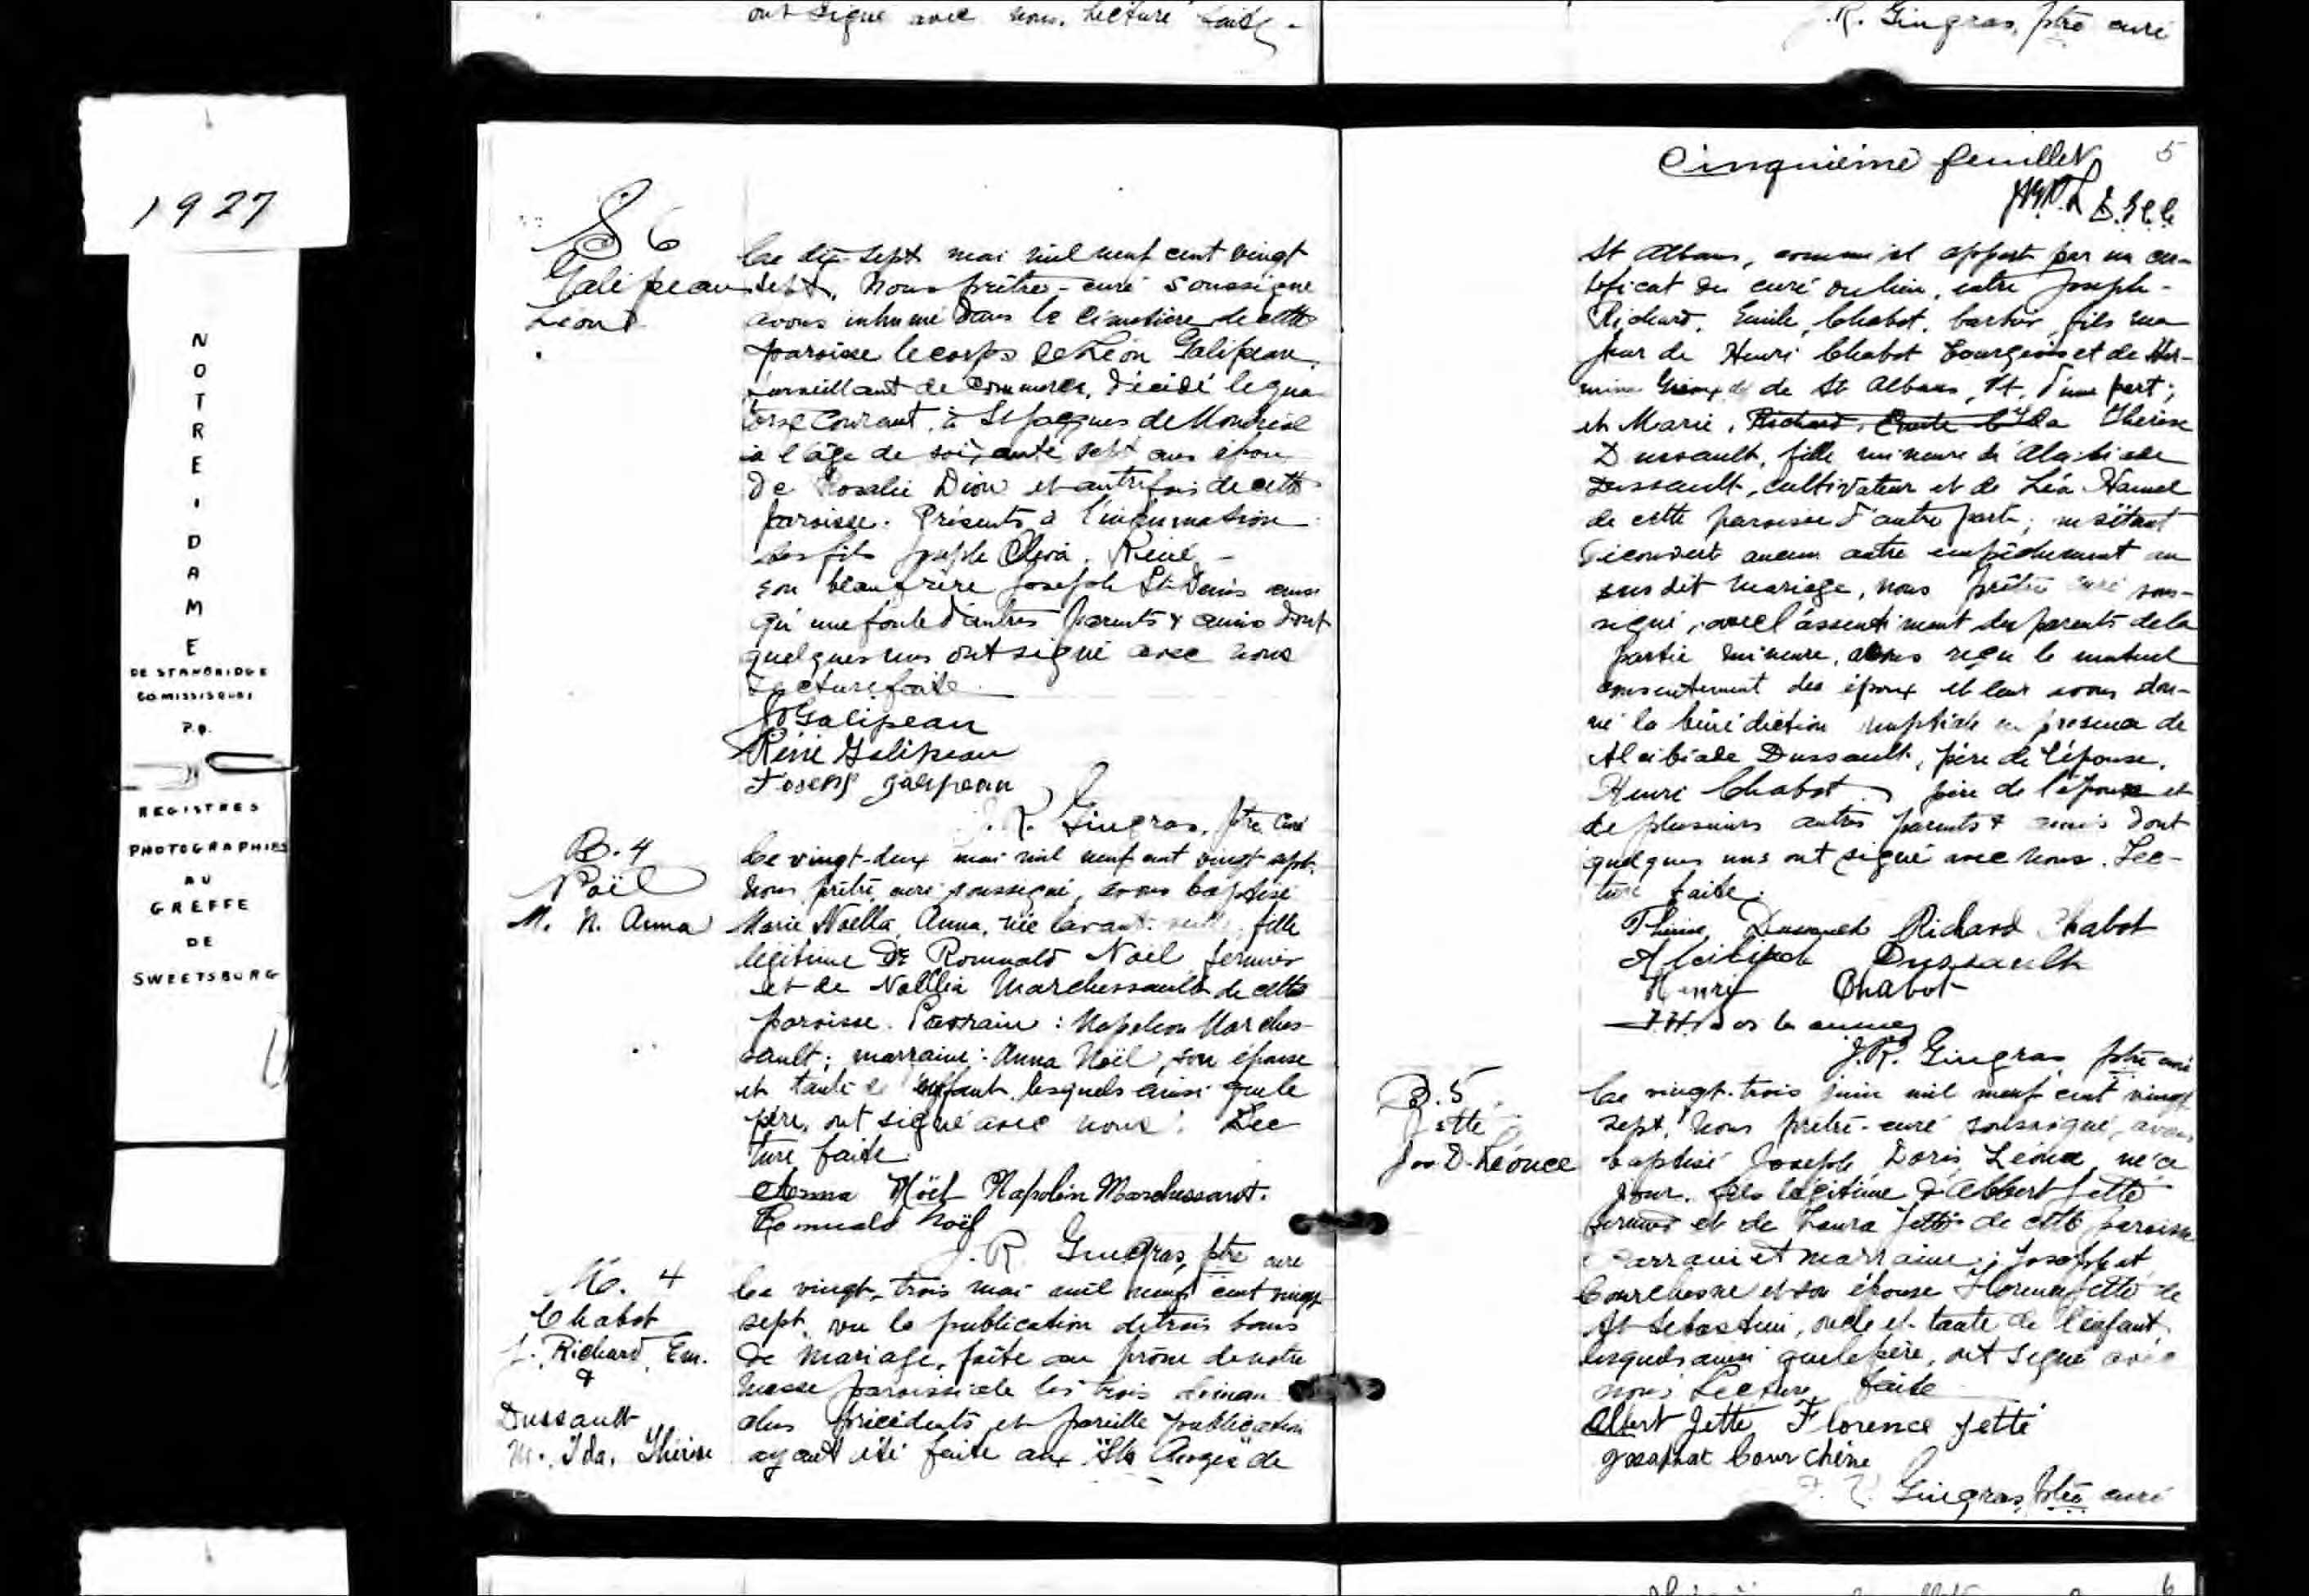 ont signé avec nous. Lecture faite.
J.R. Gingras, ptre curé
1927
NOTRE-DAME
DE STANBRIDGE
CO. MISSISQUOI
P.Q.
REGISTRES
PHOTOGRAPHIES
AU
GREFFE
DE
SWEETSBURG
S 6
Galipeau
Léon
Ce dix-sept mai mil neuf cent vingt
sept, Nous prêtre-curé soussigné
avons inhumé dans le cimetière de cette
paroisse le corps de Léon Galipeau,
surveillant de commerce, décédé le qua-
torze courant, à St Jacques de Montréal
à l'âge de soixante sept ans époux
de Rosalie Dion et autrefois de cette
paroisse. Présents à l'inhumation
ses fils Joseph René -
son beau frère Joseph St-Denis ainsi
qu'une foule d'autres parents & amis dont
quelques uns ont signé avec nous
Lecture faite.
Galipeau
René Galipeau
Joseph Galipeau
J.R. Gingras, ptre curé
B. 4
Noël
M. N. Anna
Ce vingt-deux mai mil neuf cent vingt sept,
nous prêtre curé soussigné, avons baptisé
Marie Noëlla, Anna, née l'avant-veille, fille
légitime de Romuald Noël, fermier
et de Marchessault de cette
paroisse. Parrain : Napoléon Marches-
sault ; marraine : Anna Noël, son épouse
et tante de l'enfant, lesquels ainsi que le
père, ont signé avec nous. Lec
ture faite.
Anna Noël Napoléon Marchessault.
Romuald Noël
J. R Gingras, ptre curé
M. 4
Chabot
J. Richard, Em.
&
Dussault
M. Ida, Thérèse
Ce vingt-trois mai mil neuf cent vingt
sept, vu la publication de trois bans
de mariage, faite au prône de notre
messe paroissiale les trois diman
ches précédents et pareille publication
ayant été faite aux "Sts Anges" de
Cinquième feuillet 5
St Albans, comme il appert par un cer-
tificat du curé du lieu, entre Joseph-
Richard, Emile, Chabot, barbier, fils ma
jeur de Henri Chabot bourgeois et de Her-
mine de St Albans, Vt, d'une part ;
et Marie, Richard, Emile Ida Thérèse
Dussault, fille mineure de Alcibiade
Dussault, cultivateur et de Léa Hamel
de cette paroisse d'autre part ; ne s'étant
découvert aucun autre empêchement au
susdit mariage, nous prêtre curé sous-
signé, avec l'assentiment des parents de la
partie mineure, avons reçu le mutuel
consentement des époux et leur avons don-
né la bénédiction nuptiale en présence de
Alcibiade Dussault, père de l'épouse,
Henri Chabot, père de l'époux et
de plusieurs autres parents & amis dont
quelques uns ont signé avec nous. Lec-
ture faite.
Thérèse Dussault Richard Chabot
Alcibiade Dussault
Henri Chabot
J.R. Gingras, ptre curé
B. 5
Jetté
Jos. D. Léonce
Ce vingt-trois juin mil neuf cent vingt
sept, Nous prêtre-curé soussigné, avons
baptisé Joseph, Doris, Léonce, né ce
jour, fils légitime d'Albert Jetté
fermier et de Laura Jetté de cette paroisse
Parrain et marraine ; Josaphat
Courchesne et son épouse Florence Jetté de
St Sébastien, oncle et tante de l'enfant,
lesquels ainsi que le père, ont signé avec
nous. Lecture faite
Albert Jetté Florence Jetté
Josaphat Courchène
J. R. Gingras, ptre curé
6